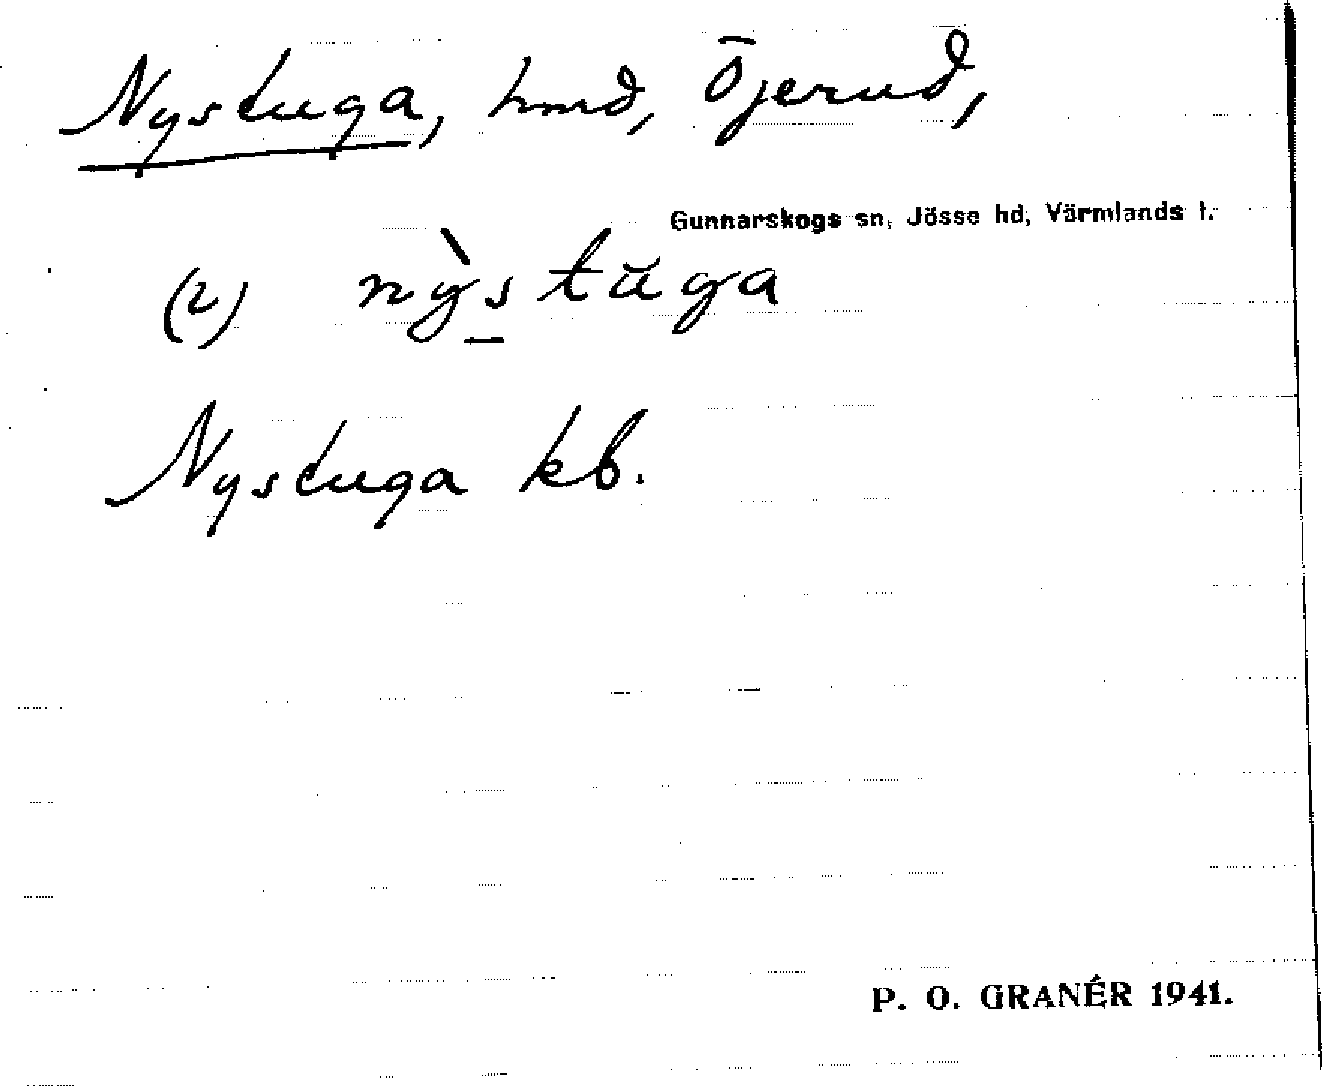 Nystuga, hmd, Öjerud,
Gunnarskogs sn, Jösse hd, Värmlands l.
(2) nỳstŭga
Nystuga kb.
P. O. GRANÉR 1941.